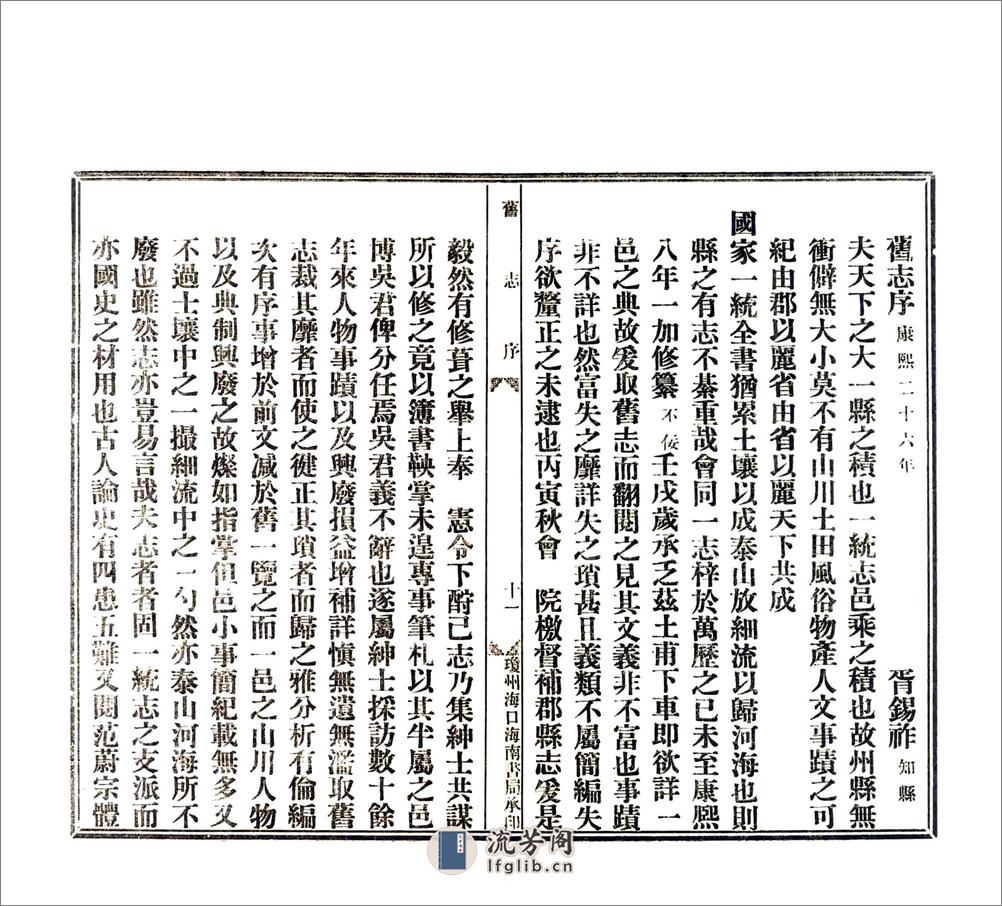 舊志序 康熙二十六年 胥錫祚 知縣
夫天下之大一縣之積也一統志邑乘之積也故州縣無
衝僻無大小莫不有山川土田風俗物產人文事蹟之可
紀由郡以麗省由省以麗天下共成
國家一統全書猶累土壤以成泰山放細流以歸河海也則
縣之有志不綦重哉會同一志梓於萬歷之己未至康熙
八年一加修纂不佞壬戌歲承乏茲土甫下車即欲詳一
邑之典故爰取舊志而翻閱之見其文義非不富也事蹟
非不詳也然富失之靡詳失之瑣甚且義類不屬簡編失
序欲釐正之未逮也丙寅秋會 院檄督補郡縣志爰是
舊志序 十一 瓊州海口海南書局承印
毅然有修葺之舉上奉 憲令下酧己志乃集紳士共謀
所以修之竟以簿書鞅掌未遑專事筆札以其半屬之邑
博吳君俾分任焉吳君義不辭也遂屬紳士採訪數十餘
年來人物事蹟以及興廢損益增補詳愼無遺無濫取舊
志裁其靡者而使之健正其瑣者而歸之雅分析有倫編
次有序事增於前文減於舊一覽之而一邑之山川人物
以及典制興廢之故燦如指掌但邑小事簡紀載無多又
不過士壤中之一撮細流中之一勺然亦泰山河海所不
廢也雖然志亦豈易言哉夫志者者固一統志之支派而
亦國史之材用也古人論史有四患五難又閱范蔚宗體
流芳阁
lfglib.cn